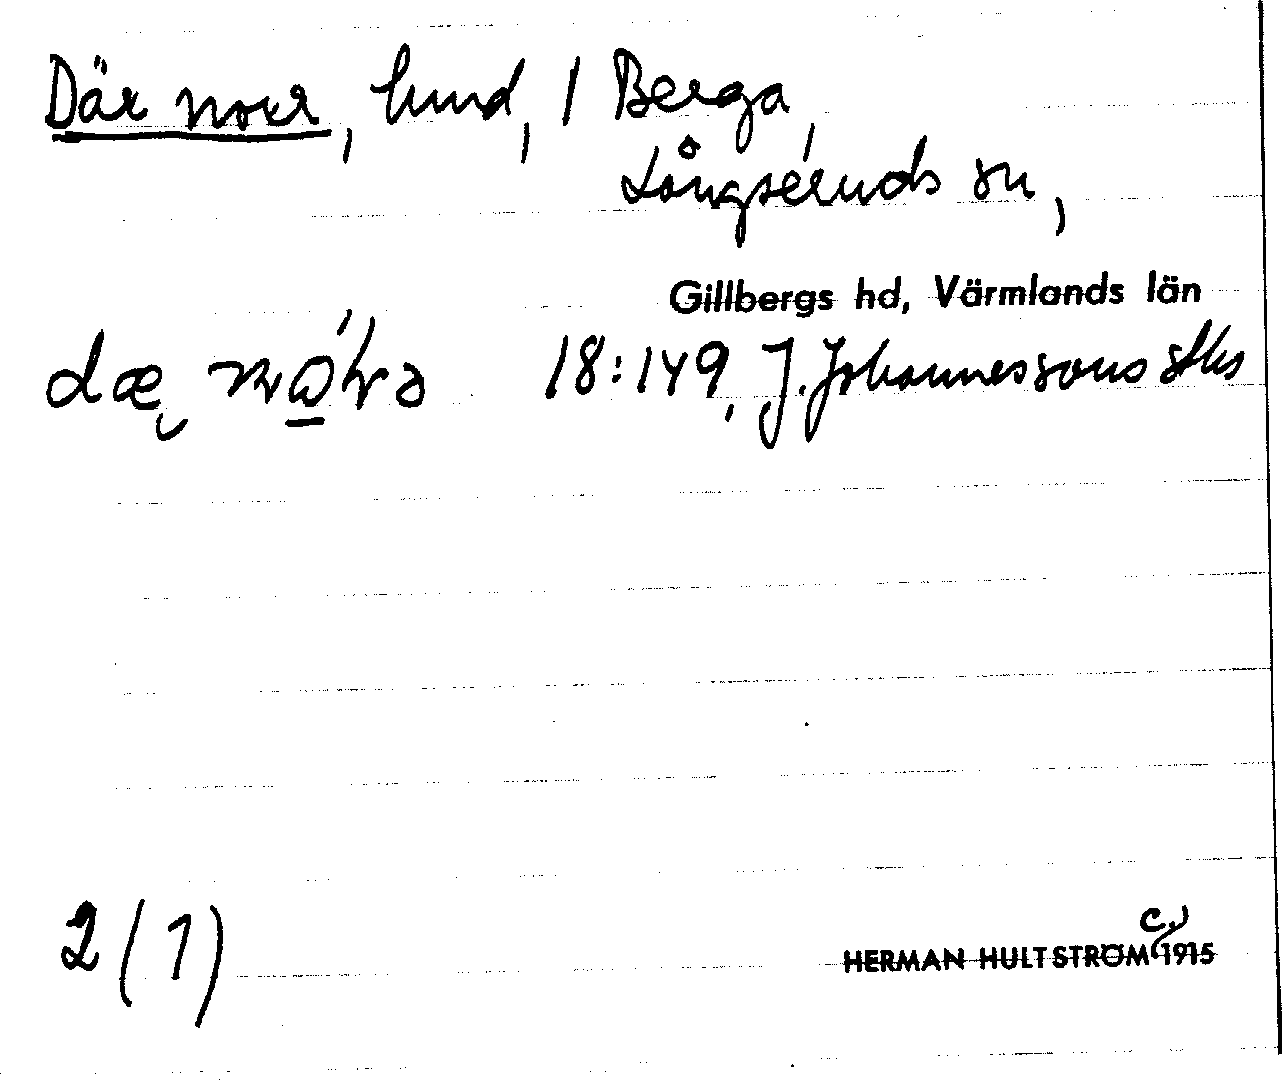 Där norr, lund, 1 Berga,
Långseruds sn,
Gillbergs hd, Värmlands län
18:149, J. Johannessons
2(1)
HERMAN HULTSTRÖM c. 1915